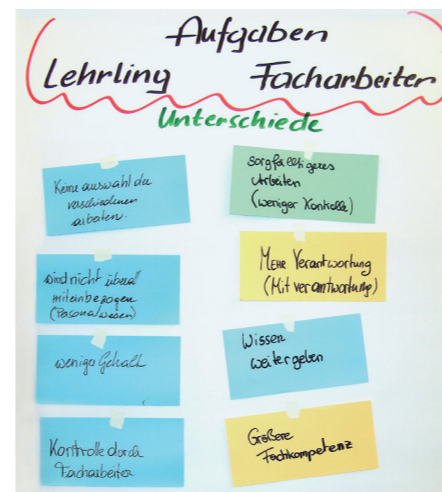 Aufgaben
Lehrling Facharbeiter
Unterschiede
Keine auswahl der
verschiedenen
arbeiten.
wird nicht überall
miteinbezogen
(Personalwesen)
weniger Gehalt
Kontrolle durch
Facharbeiter
Sorgfältigeres
Arbeiten
(weniger Kontrolle)
Mehr Verantwortung
(Mitverantwortung)
Wissen
weitergeben
Größere
Fachkompetenz